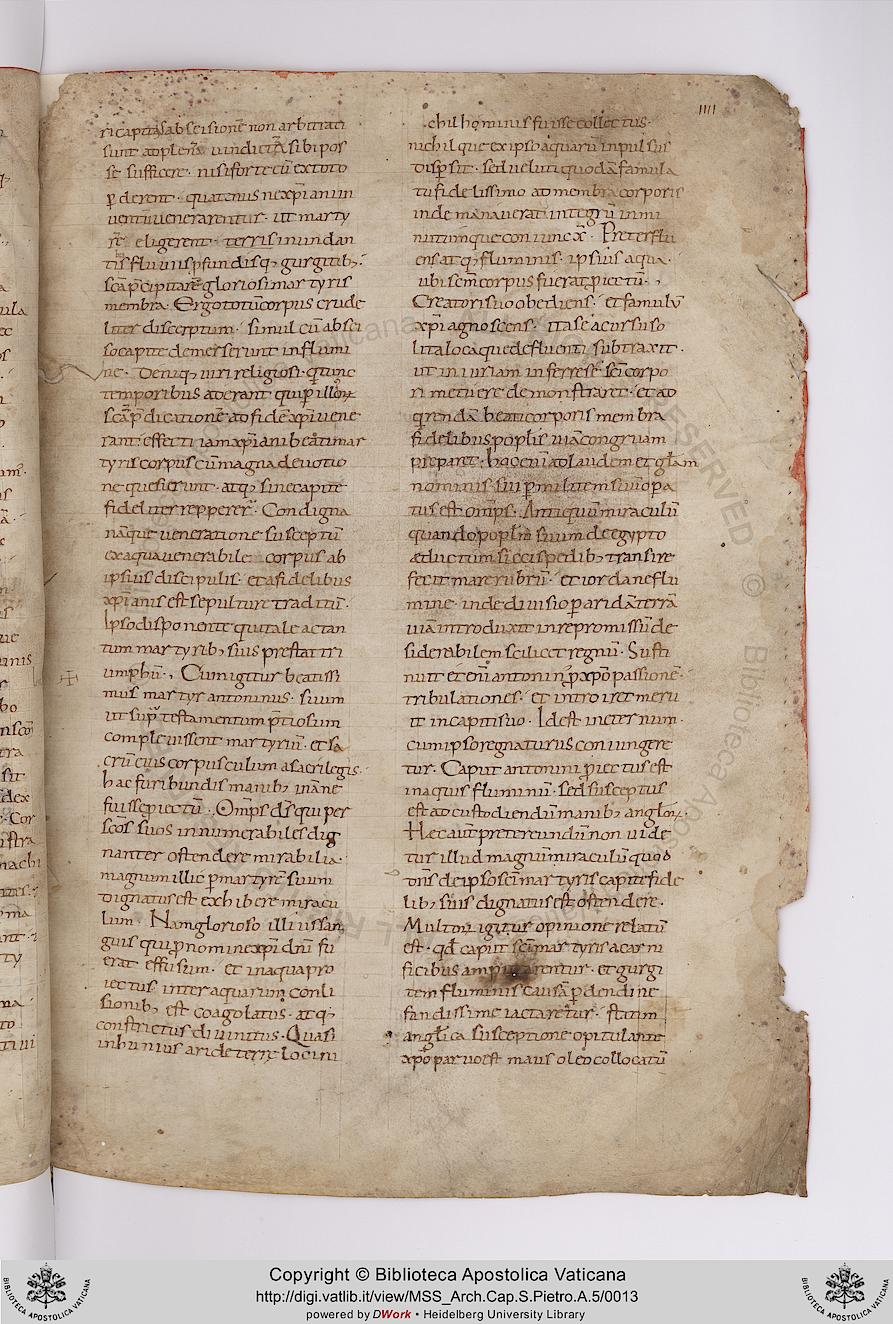 ri capitis abscisionē non arbitrati
sunt ad plenā uindictā sibi pos
se sufficere · nisi forte cū ex toto
ꝑderent · quatenus ne xp̄iani in
uentū uenerarentur · ut marty
rē eligerent · terris inundan
tis fluuii ꝓfundisq; gurgitib;
scā p̄cipitare gloriosi martyris
membra · Ergo totū corpus crude
liter discerptum · simul cū absci
so capite demerserunt in flumi
ne · Deniq; uiri religiosi · q̄ tunc
temporibus aderant qui ꝑ illoꝝ
scā p̄dicationē ad fidē xp̄i uene
rant effecti iam xp̄iani beati mar
tyris corpus cū magna deuotio
ne quesierunt · atq; sine capite
fideliter reppererꝛ̄ · Condigna
nāque ueneratione susceptū
ex aqua uenerabile corpus ab
ipsius discipulis · et a fidelibus
xp̄ianis est sepulture traditū ·
Ipso disponente qui tale actan
tum martyrib; suis prestat tri
umphū · Cum igitur beatissi
mus martyr antoninus · suum
ut supͣ testamentum p̄tiosum
compleuissent martyriū · et sa
crū eius corpusculum a sacrilegis ·
hac furibundis manib; ināne
fuisse ꝓiectū · Omp̄s ds̄ qui per
scōs suos innumerabiles dig
nanter ostendere mirabilia ·
magnum illic ꝑ martyrē suum
dignatus est exhibere miracu
lum · Nam glorioso illius san
guis qui ꝓ nomine xp̄i dn̄i fu
erat effusum · et in aqua pro
iectus inter aquarum conli
sionib; est coagolatus · atq;
constrictus diuinitus · Quasi
in hunius aride terrę loci ni
chil hominis fuisse collectus ·
nichilque ex ipso aquarū inpulsus
dispsit · sed ueluti quodā famula
tu fidelissimo ad membra corporis
inde manauerat integrū inmi
nutumque coniuncx̄ · Preterflu
ens atq; fluminis · ipsius aqua ·
ubi scm̄ corpus fuerat ꝓiectū ·
Creatori suo obediens · et famulū
xp̄i agnoscens · ita se a cursu so
lita loca que defluenti subtraxit ·
ut iniuriam inferre se sc̄i corpo
ri metuere demonstraret · et ad
q̄rendā beati corporis membra
fidelibus poplis uiā congruam
preparet · hoc enī ad laudem et glām
nominis sui ꝑ militem suum opa
tus est omp̄s · Antiquū miraculū
quando poplm̄ suum de egypto
eductum siccis pedib; transire
fecit mare rubrū · et iordane flu
mine · inde diuisio ꝑ aridā terrā
uiā introduxit in repromissū de
siderabilem scilicet regnū · Susti
nuit et enī antoninꝰ ꝓ xp̄o passione ·
tribulationes · et introiret meru
it in capiti suo · Id est in eternum ·
cum ipso regnaturus coniungere
tur · Caput antonini ꝓiectus est
in aquis fluminū · sed susceptus
est ad custodiendū manib; angloꝝ ·
Hec aut̄ pretereundū non uide
tur illud magnū miraculū quod
dn̄s de ipso sc̄i martyris capite fide
lib; suis dignatus est ostendere ·
Multorū igitur opinione relatū
est · qd̄ caput sc̄i martyris a carni
ficibus amputarentur · et gurgi
tem fluminis causā ꝑdendi ne
fandissime iactaretur · statim
anglīca susceptione opitulante
xp̄o paruo est nauis oleo collocatū
IIII
Copyright © Biblioteca Apostolica Vaticana
http://digi.vatlib.it/view/MSS_Arch.Cap.S.Pietro.A.5/0013
powered by DWork • Heidelberg University Library